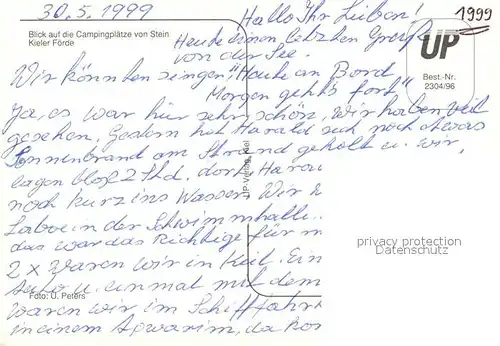 30.5.1999
1999
Hallo Ihr Lieben!
Blick auf die Campingplätze von Stein
Kieler Förde
Heute einen letzten Gruß
von der See.
UP
Best.-Nr.
2304/96
Wir könnten singen, "Heute an Bord
Morgen geht's fort"
Ja, es war hier sehr schön, wir haben viel
gesehen, Gestern hat Harald sich noch etwas
Sonnenbrand am Strand geholt u. wir
lagen bloß 2 Std. dort, Hara
noch kurz ins Wasser. Wir
Laboe in der Schwimmhalle.
das war das Richtige für m
2 x waren wir in Kiel. Ein
Auto u. einmal mit dem
waren wir im Schifffahrt
in einem Aquarium, da
UP-Verlag, Kiel
Foto: U. Peters
privacy protection
Datenschutz